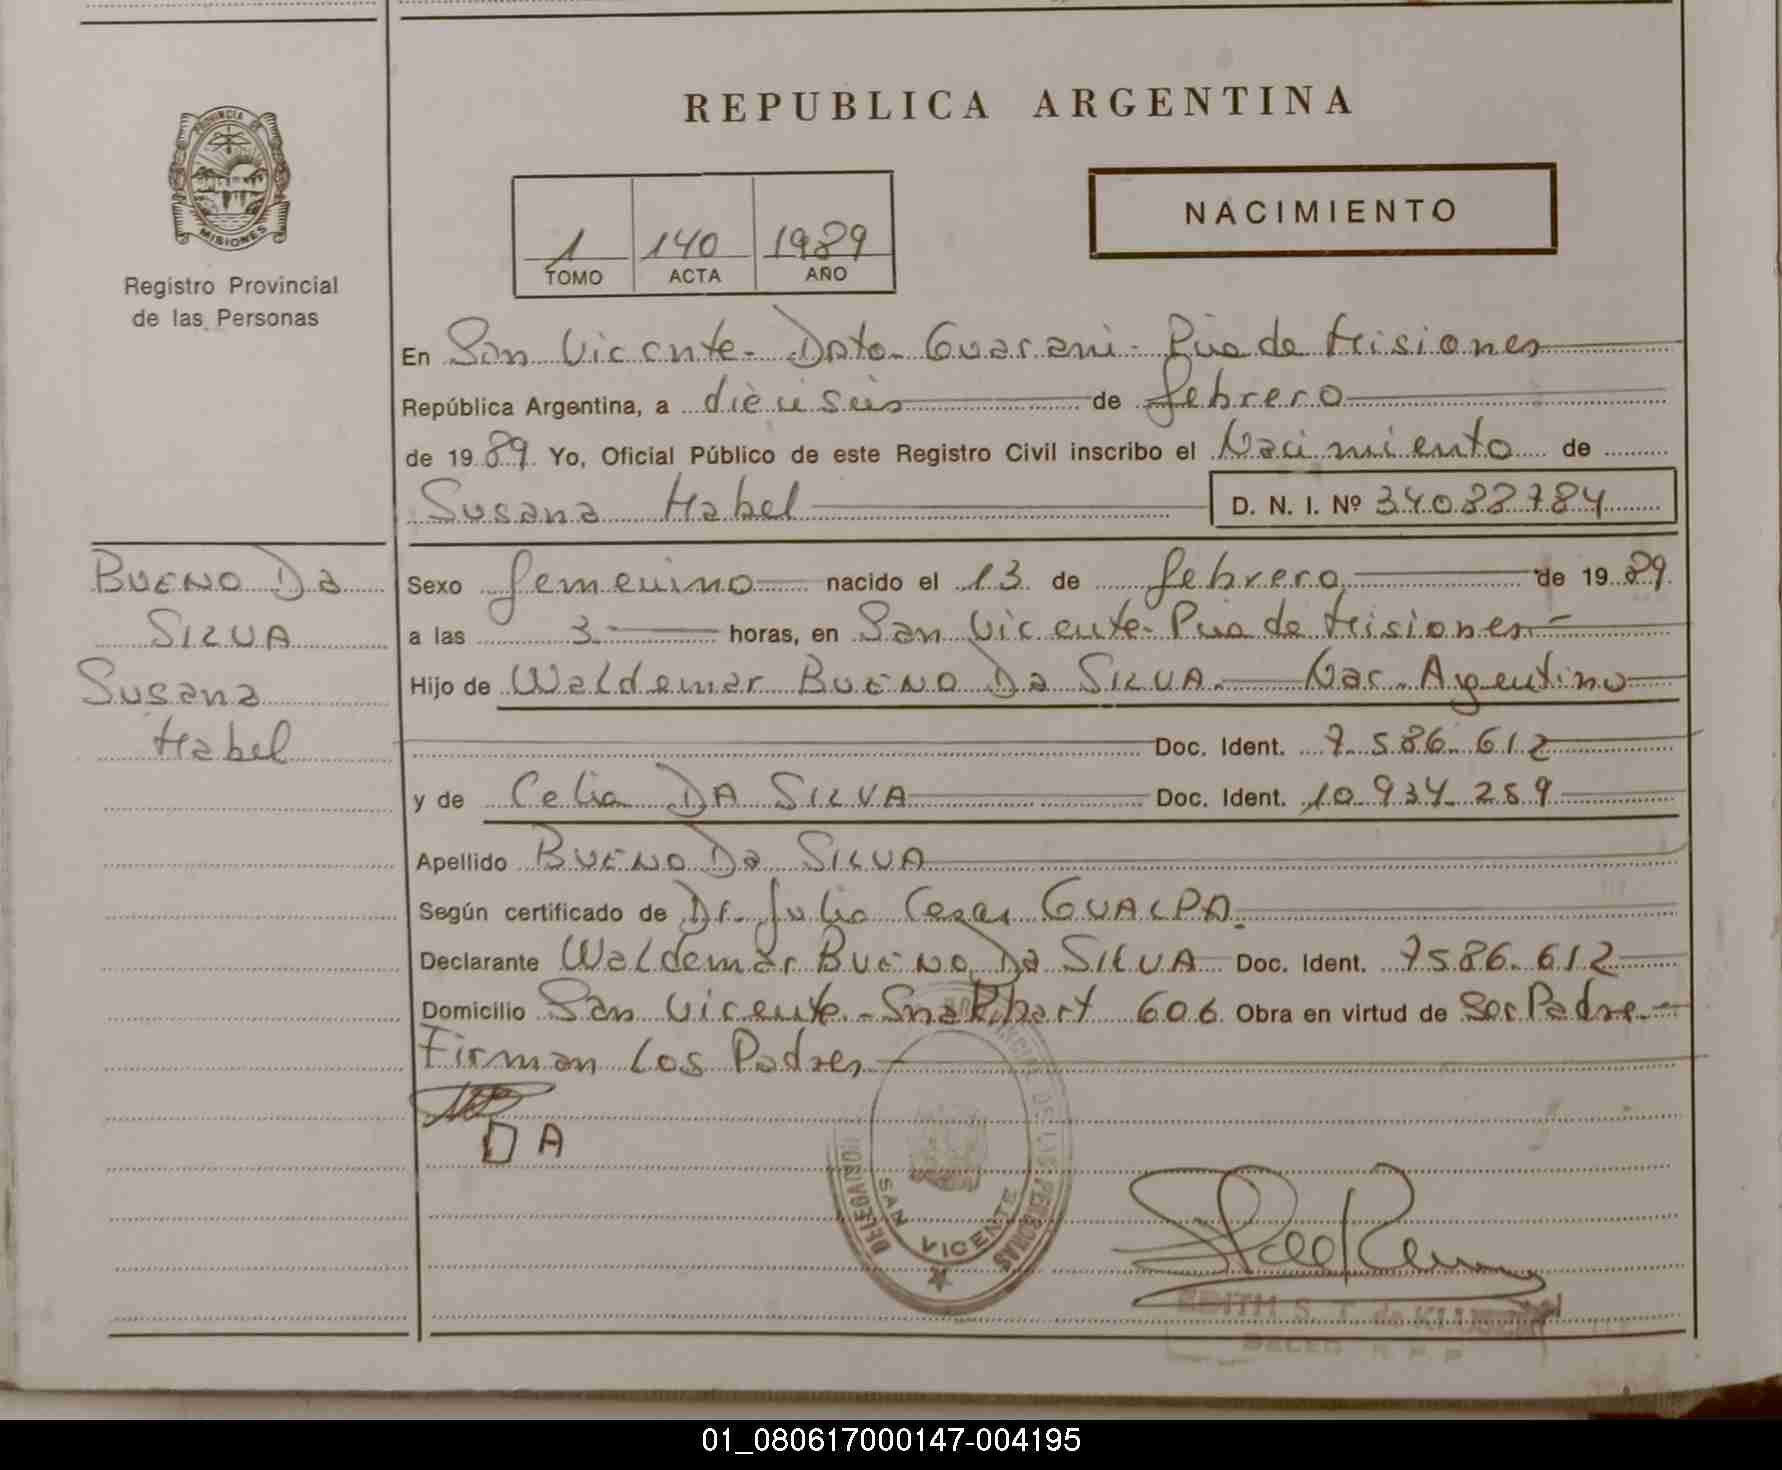 REPUBLICA ARGENTINA
PROVINCIA DE
MISIONES
Registro Provincial
de las Personas
1 140 1989
TOMO ACTA AÑO
NACIMIENTO
En San Vicente - Dpto. Guarani - Pcia de Misiones
República Argentina, a dieciseis de febrero
de 1989 Yo, Oficial Público de este Registro Civil inscribo el Nacimiento de
Susana Mabel D. N. I. Nº 34088784
BUENO DA
SILVA
Susana
Mabel
Sexo femenino nacido el 13 de febrero de 1989
a las 3 horas, en San Vicente - Pcia de Misiones -
Hijo de Waldemar BUENO DA SILVA. Nac. Argentino
Doc. Ident. 7.586.612
y de Celia DA SILVA Doc. Ident. 10.934.259
Apellido BUENO DA SILVA
Según certificado de Dr. Julio Cesar GUALPA.
Declarante Waldemar BUENO DA SILVA Doc. Ident. 7586.612
Domicilio San Vicente - 606 Obra en virtud de Ser Padre -
Firman Los Padres
D A
DELEGACION DE LAS PERSONAS
SAN VICENTE
EDITH S. T. de
DELEG. R. P. P.
01_080617000147-004195